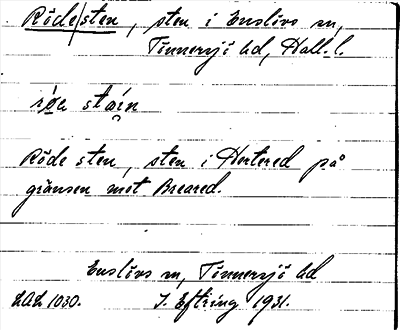 Röde/sten, sten i Enslövs sn,
Tönnersjö hd, Hall. l.
röe stain
Röde sten, sten i Hertered på
gränsen mot Breared.
Enslövs sn, Tönnersjö hd
LAL 1030. J. Eftring 1931.